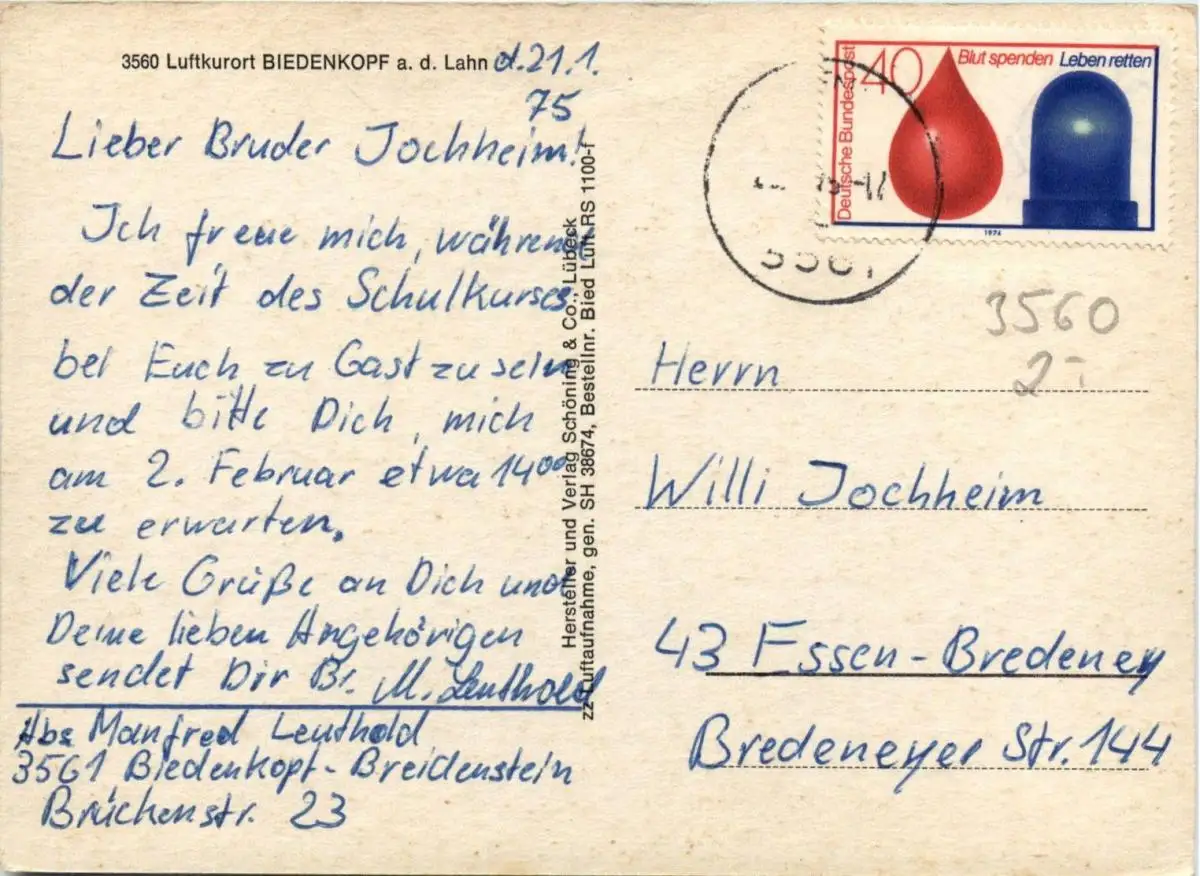 3560 Luftkurort BIEDENKOPF a. d. Lahn d. 21.1.
75
Lieber Bruder Jochheim!
Ich freue mich, während
der Zeit des Schulkurses
bei Euch zu Gast zu sein
und bitte Dich, mich
am 2. Februar etwa 14⁰⁰
zu erwarten.
Viele Grüße an Dich und
Deine lieben Angehörigen
sendet Dir Br. M. Leuthold
Abs Manfred Leuthold
3561 Biedenkopf-Breidenstein
Brückenstr. 23
Hersteller und Verlag Schöning & Co., Lübeck
zz Luftaufnahme, gen. SH 38674, Bestellnr. Bied Luft RS 1100-f
Deutsche Bundespost
40
Blut spenden Leben retten
1974
3560
2-
Herrn
Willi Jochheim
43 Essen-Bredeney
Bredeneyer Str. 144